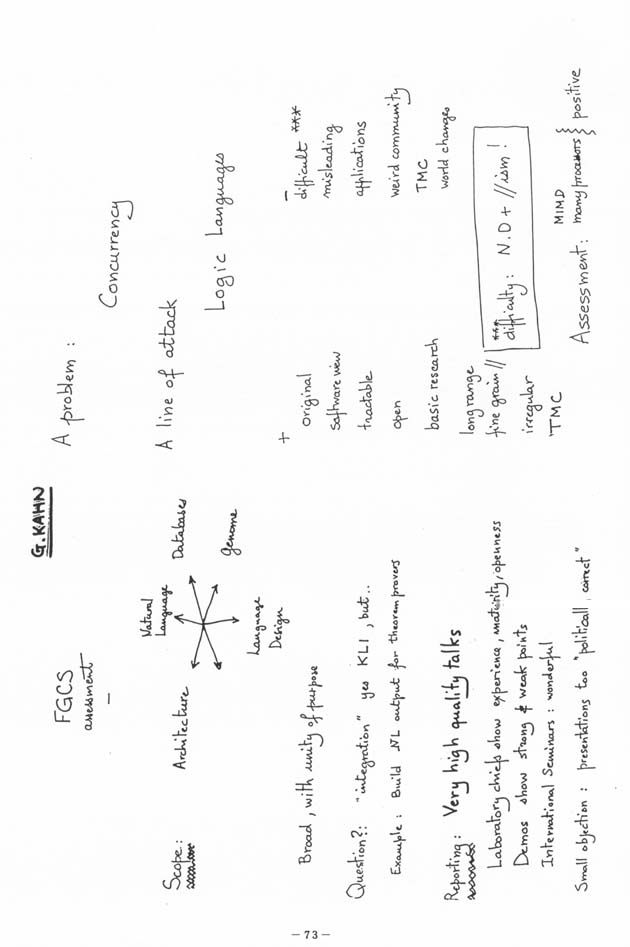 G. KAHN
FGCS
assessment
—
Scope:
Architecture
Natural
Language
Databases
Genome
Language
Design
Broad, with unity of purpose
Question?: "integration" yes KL1, but..
Example: Build NL output for theorem provers
Reporting: Very high quality talks
Laboratory chiefs show experience, maturity, openness
Demos show strong & weak points
International Seminars: wonderful
Small objection: presentations too "politicall. correct"
A problem:
Concurrency
A line of attack
Logic Languages
+
original
software view
tractable
open
basic research
long range
fine grain //
irregular
TMC
—
difficult ***
misleading
applications
weird community
TMC
world changes
***
difficulty: N.D + //ism!
Assessment: MIMD
many processors } positive
— 73 —